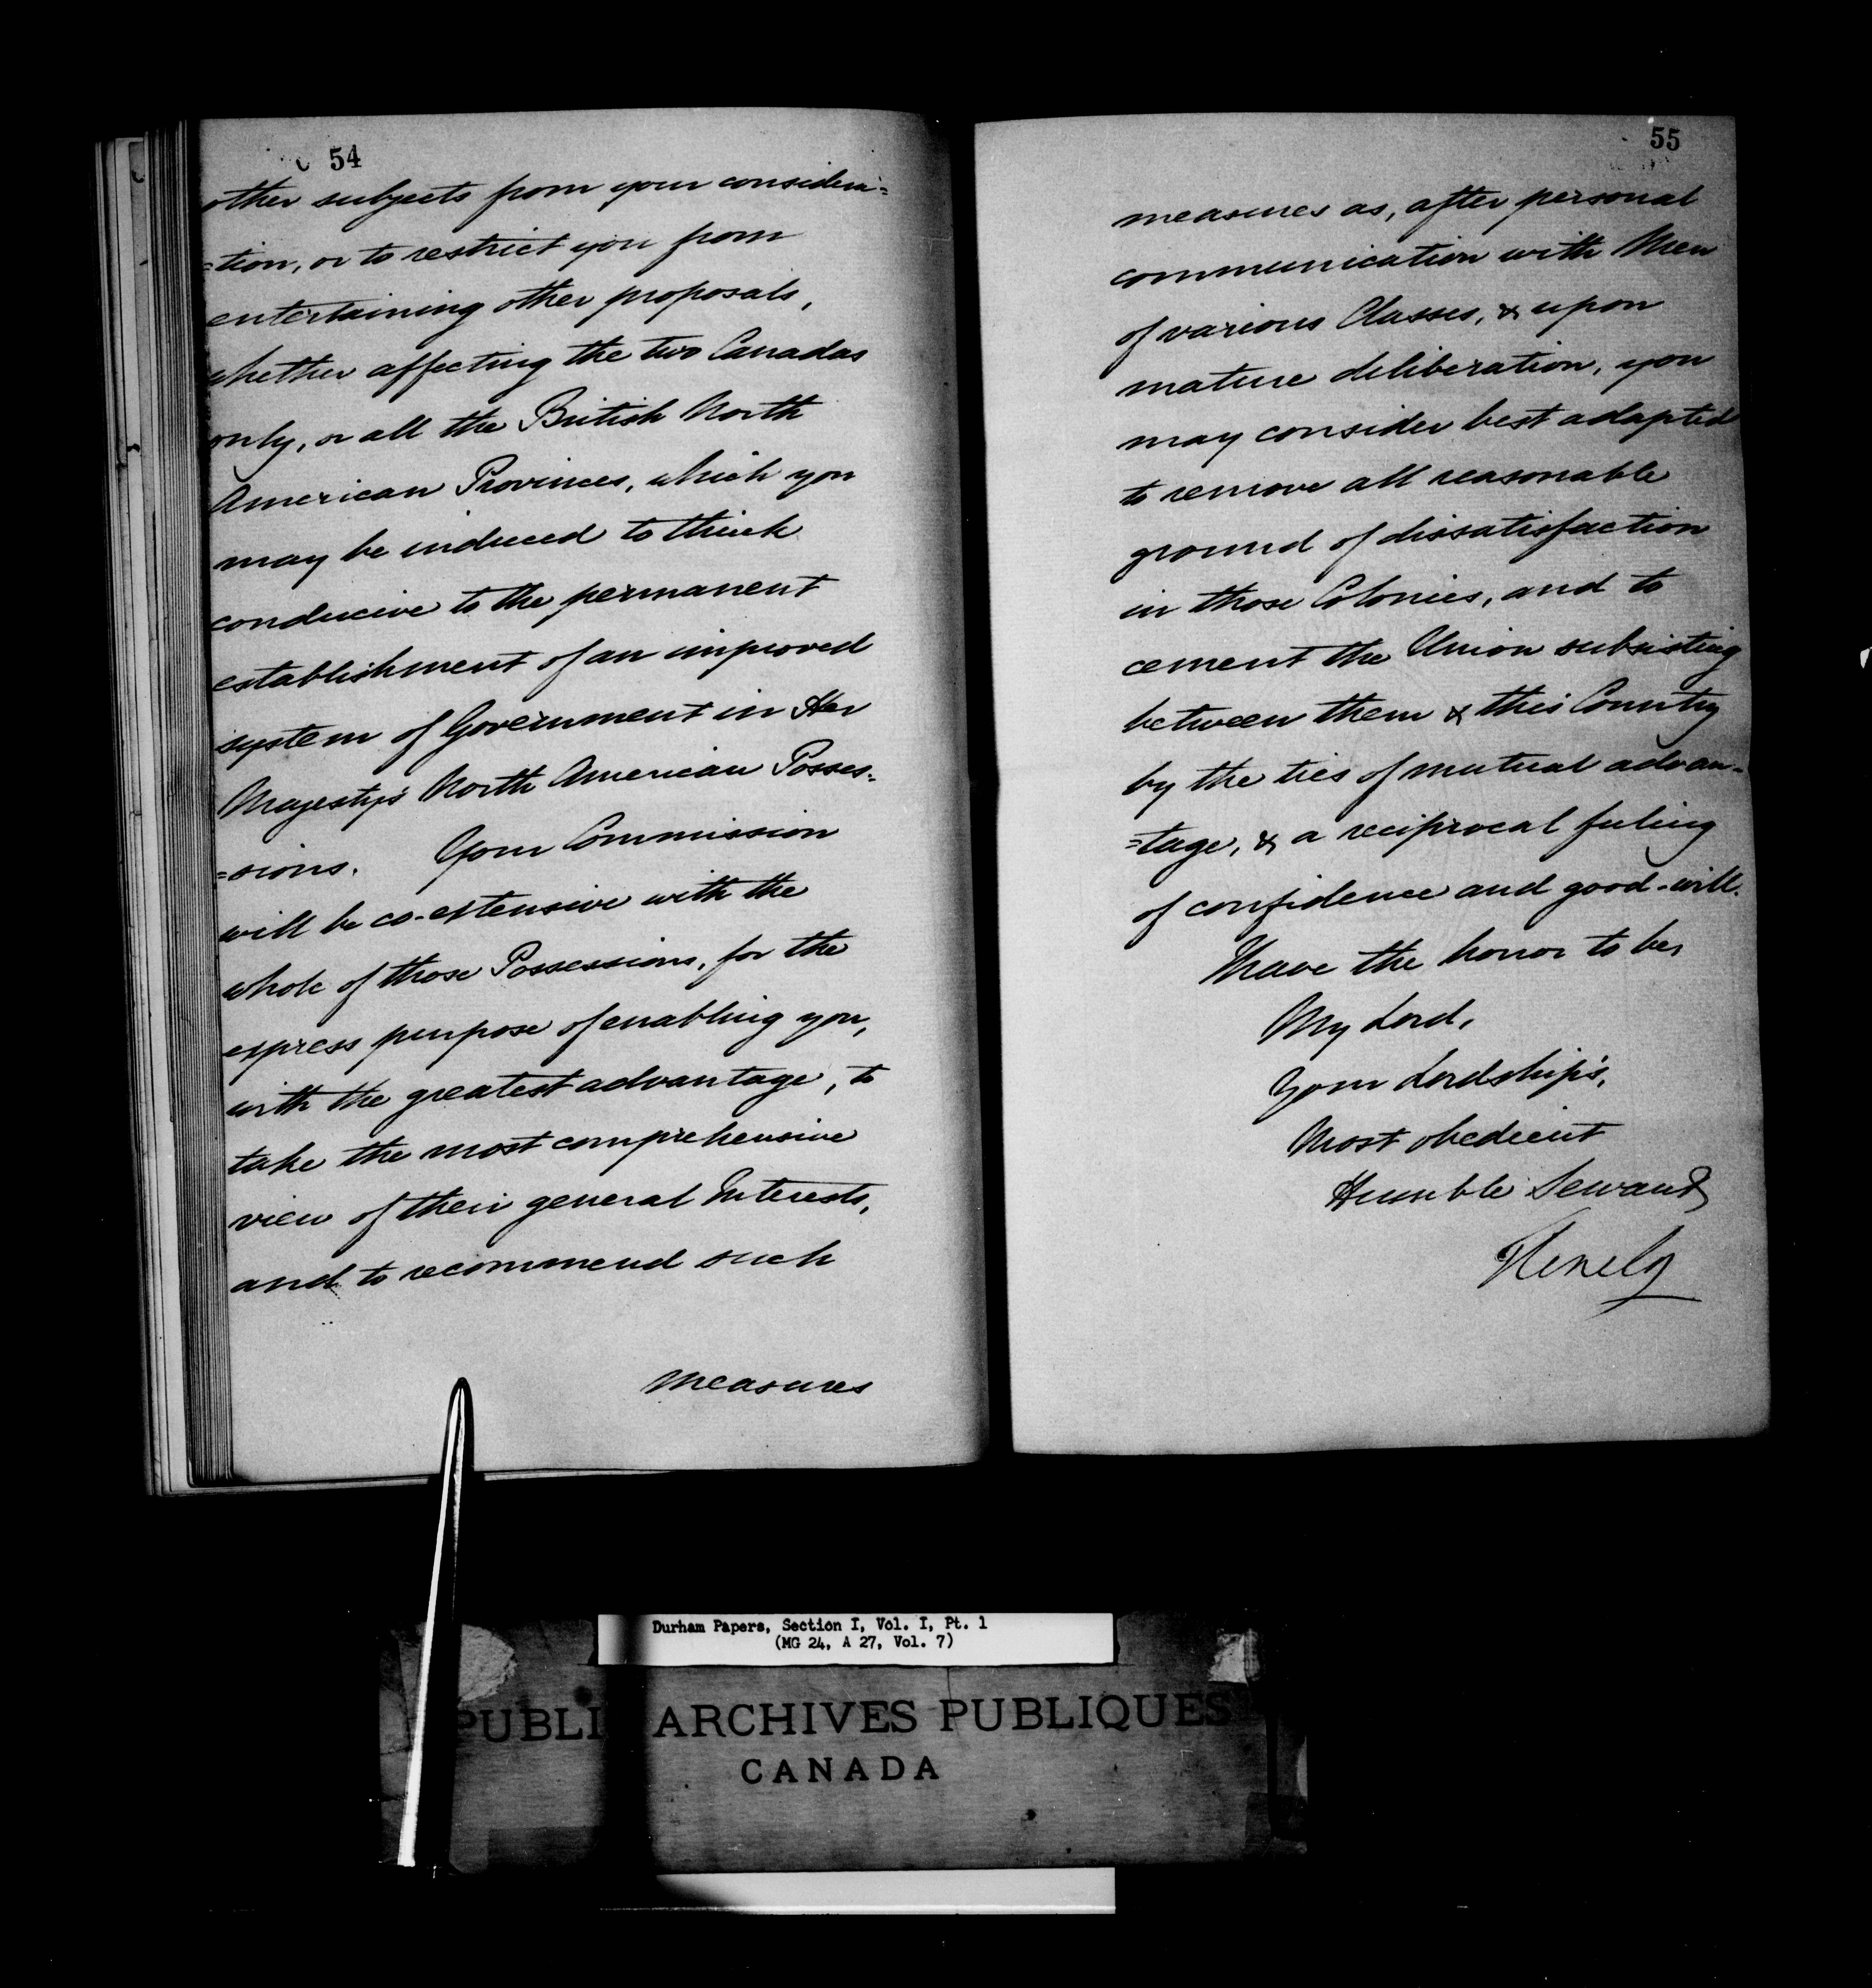 54
other subjects from your considera=
=tion, or to restrict you from
entertaining other proposals,
whether affecting the two Canadas
only, or all the British North
American Provinces, which you
may be induced to think
conducive to the permanent
establishment of an improved
system of Government in Her
Majesty's North American Posses=
=sions. Your Commission
will be co-extensive with the
whole of those Possessions, for the
express purpose of enabling you,
with the greatest advantage, to
take the most comprehensive
view of their general Interests,
and to recommend such
measures
55
measures as, after personal
communication with Men
of various Classes, & upon
mature deliberation, you
may consider best adapted
to remove all reasonable
ground of dissatisfaction
in those Colonies, and to
cement the Union subsisting
between them & this Country
by the ties of mutual advan=
=tage, & a reciprocal feeling
of confidence and good-will.
I have the honor to be,
My Lord,
Your Lordship's,
Most obedient
Humble Servant
Glenelg
Durham Papers, Section I, Vol. I, Pt. 1
(MG 24, A 27, Vol. 7)
PUBLI ARCHIVES PUBLIQUES
CANADA